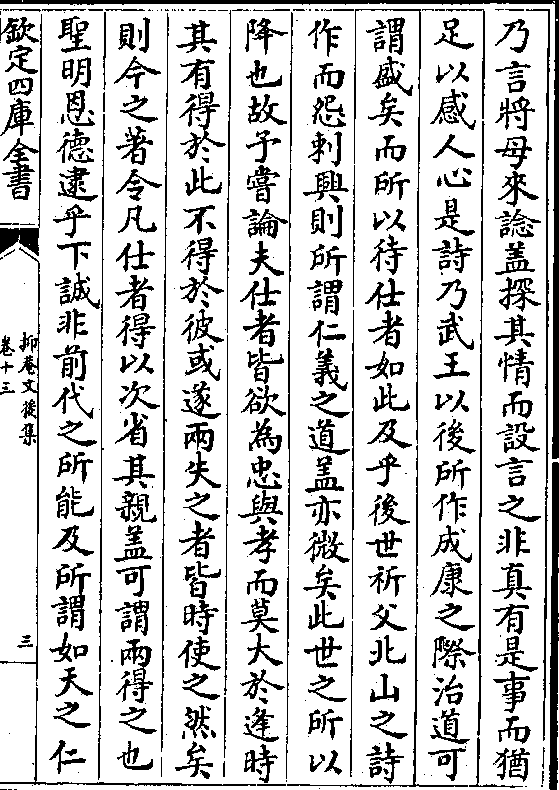 乃言將母來諗盖探其情而設言之非真有是事而猶
足以感人心是詩乃武王以後所作成康之際治道可
謂盛矣而所以待仕者如此及乎後世祈父北山之詩
作而怨刺興則所謂仁義之道盖亦微矣此世之所以
降也故予嘗論夫仕者皆欲為忠與孝而莫大於逢時
其有得於此不得於彼或遂兩失之者皆時使之然矣
則今之著令凡仕者得以次省其親盖可謂兩得之也
聖明恩德逮乎下誠非前代之所能及所謂如天之仁
欽定四庫全書
抑菴文後集
卷十三
三